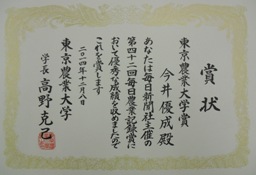 賞状
東京農業大学賞
今井優成殿
あなたは毎日新聞社主催の
第四十二回毎日農業記録賞に
おいて優秀な成績を収めましたので
これを賞します
二〇一四年十二月八日
東京農業大学
学長 髙野克己